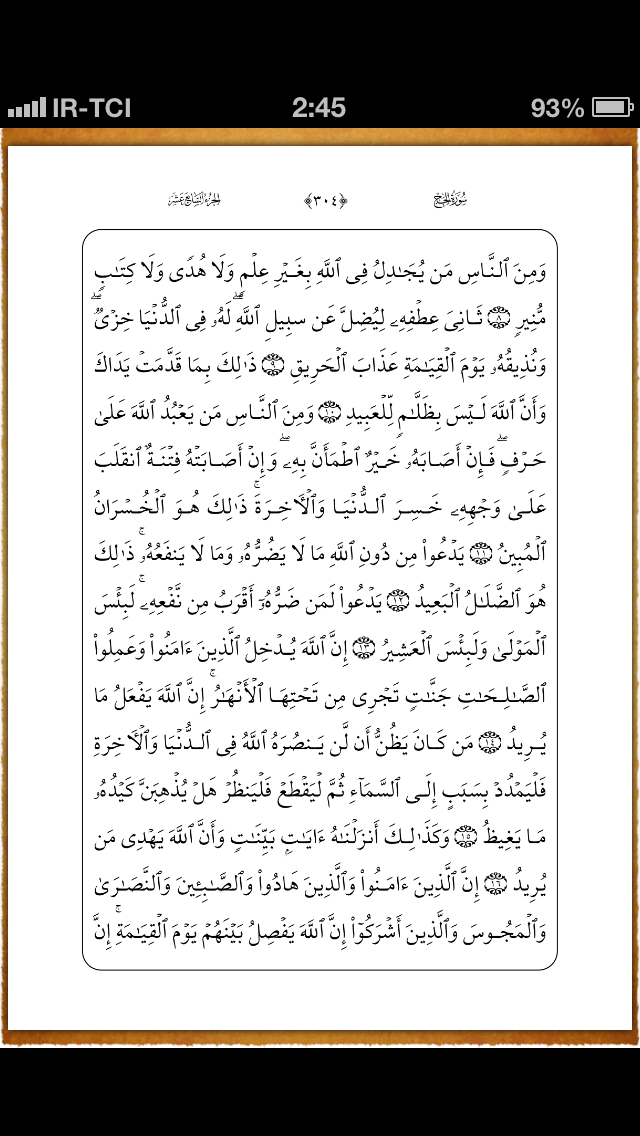 IR-TCI 2:45 93%
سُورَةُ الحَجِّ ﴿٣٠٤﴾ الجُزءُ السَّابِعَ عَشَرَ
وَمِنَ ٱلنَّاسِ مَن يُجَـٰدِلُ فِى ٱللَّهِ بِغَيْرِ عِلْمٍ وَلَا هُدًى وَلَا كِتَـٰبٍ
مُّنِيرٍ ٨ ثَانِىَ عِطْفِهِۦ لِيُضِلَّ عَن سَبِيلِ ٱللَّهِ ۖ لَهُۥ فِى ٱلدُّنْيَا خِزْىٌ ۖ
وَنُذِيقُهُۥ يَوْمَ ٱلْقِيَـٰمَةِ عَذَابَ ٱلْحَرِيقِ ٩ ذَٰلِكَ بِمَا قَدَّمَتْ يَدَاكَ
وَأَنَّ ٱللَّهَ لَيْسَ بِظَلَّـٰمٍ لِّلْعَبِيدِ ١٠ وَمِنَ ٱلنَّاسِ مَن يَعْبُدُ ٱللَّهَ عَلَىٰ
حَرْفٍ ۖ فَإِنْ أَصَابَهُۥ خَيْرٌ ٱطْمَأَنَّ بِهِۦ ۖ وَإِنْ أَصَابَتْهُ فِتْنَةٌ ٱنقَلَبَ
عَلَىٰ وَجْهِهِۦ خَسِرَ ٱلدُّنْيَا وَٱلْـَٔاخِرَةَ ۚ ذَٰلِكَ هُوَ ٱلْخُسْرَانُ
ٱلْمُبِينُ ١١ يَدْعُوا۟ مِن دُونِ ٱللَّهِ مَا لَا يَضُرُّهُۥ وَمَا لَا يَنفَعُهُۥ ۚ ذَٰلِكَ
هُوَ ٱلضَّلَـٰلُ ٱلْبَعِيدُ ١٢ يَدْعُوا۟ لَمَن ضَرُّهُۥٓ أَقْرَبُ مِن نَّفْعِهِۦ ۚ لَبِئْسَ
ٱلْمَوْلَىٰ وَلَبِئْسَ ٱلْعَشِيرُ ١٣ إِنَّ ٱللَّهَ يُدْخِلُ ٱلَّذِينَ ءَامَنُوا۟ وَعَمِلُوا۟
ٱلصَّـٰلِحَـٰتِ جَنَّـٰتٍ تَجْرِى مِن تَحْتِهَا ٱلْأَنْهَـٰرُ ۚ إِنَّ ٱللَّهَ يَفْعَلُ مَا
يُرِيدُ ١٤ مَن كَانَ يَظُنُّ أَن لَّن يَنصُرَهُ ٱللَّهُ فِى ٱلدُّنْيَا وَٱلْـَٔاخِرَةِ
فَلْيَمْدُدْ بِسَبَبٍ إِلَى ٱلسَّمَآءِ ثُمَّ لْيَقْطَعْ فَلْيَنظُرْ هَلْ يُذْهِبَنَّ كَيْدُهُۥ
مَا يَغِيظُ ١٥ وَكَذَٰلِكَ أَنزَلْنَـٰهُ ءَايَـٰتٍۭ بَيِّنَـٰتٍ وَأَنَّ ٱللَّهَ يَهْدِى مَن
يُرِيدُ ١٦ إِنَّ ٱلَّذِينَ ءَامَنُوا۟ وَٱلَّذِينَ هَادُوا۟ وَٱلصَّـٰبِـِٔينَ وَٱلنَّصَـٰرَىٰ
وَٱلْمَجُوسَ وَٱلَّذِينَ أَشْرَكُوٓا۟ إِنَّ ٱللَّهَ يَفْصِلُ بَيْنَهُمْ يَوْمَ ٱلْقِيَـٰمَةِ ۚ إِنَّ